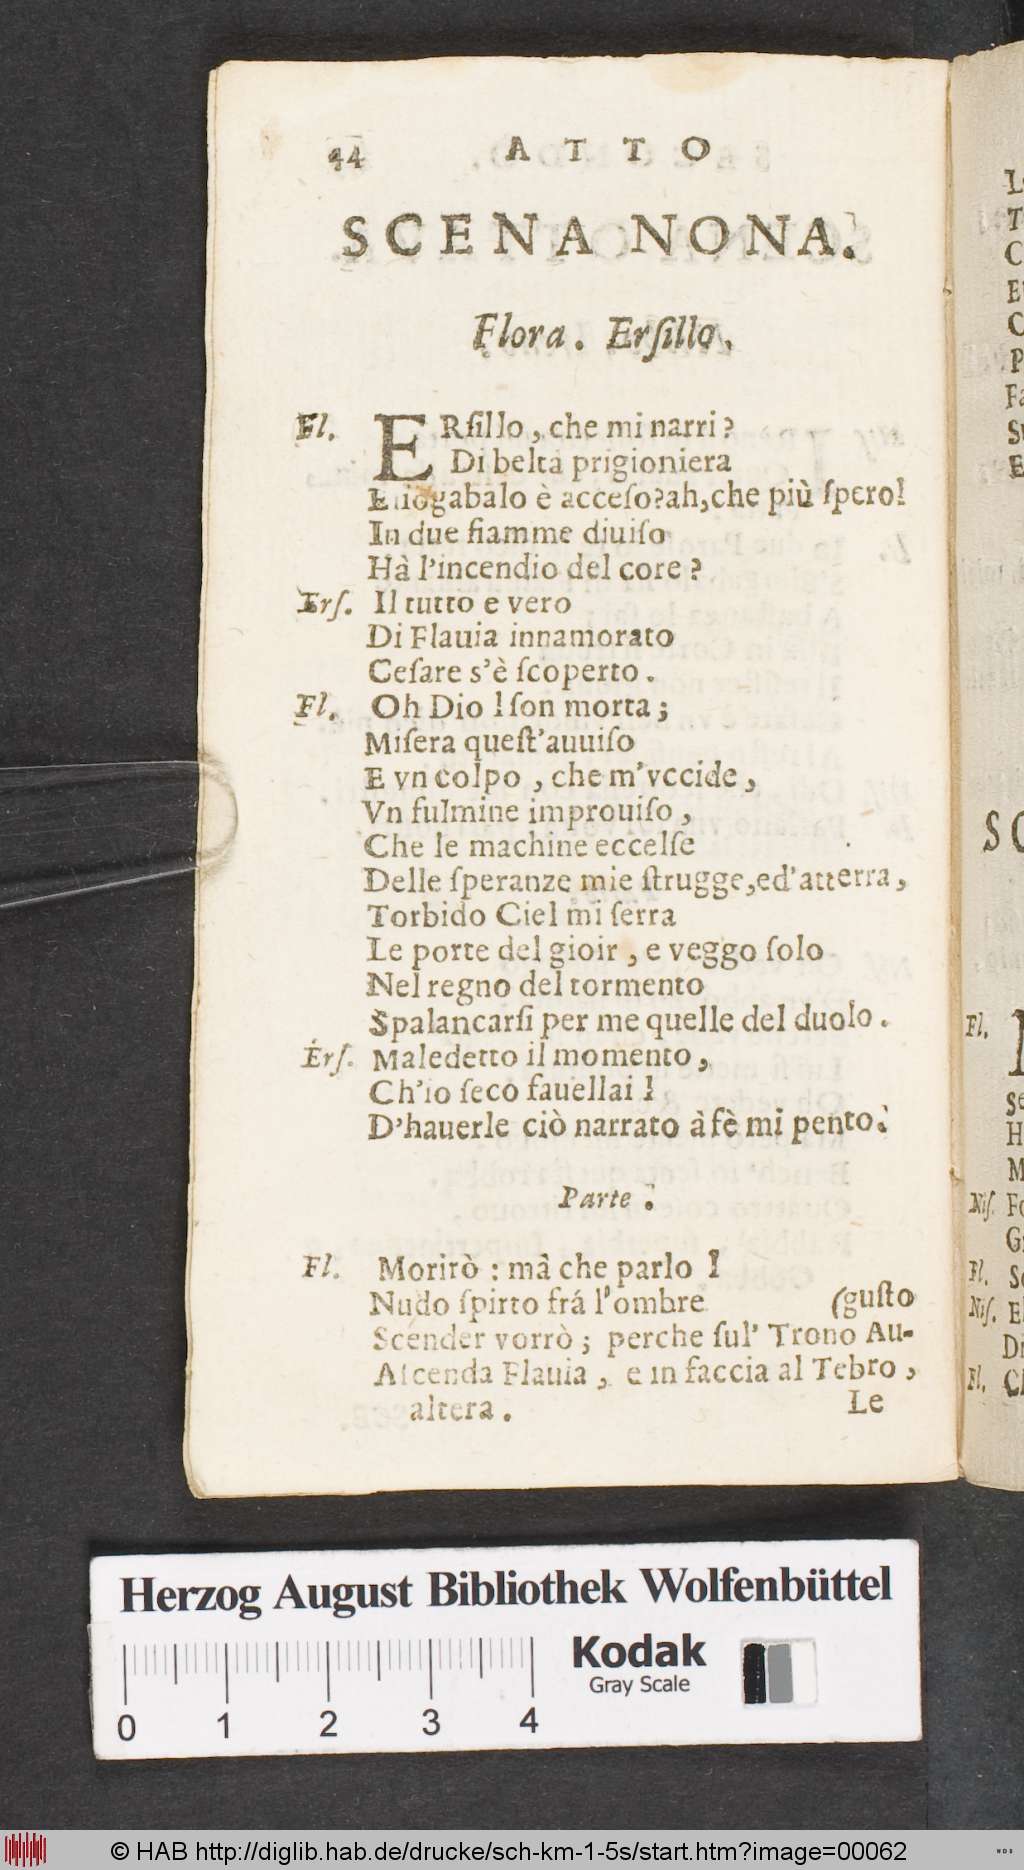 44 ATTO
SCENA NONA.
Flora. Erſillo.
Fl. ERſillo, che mi narri?
Di belta prigioniera
Eliogabalo è acceſo? ah, che più ſpero!
In due fiamme diuiſo
Hà l'incendio del core?
Erſ. Il tutto e vero
Di Flauia innamorato
Ceſare s'è ſcoperto.
Fl. Oh Dio! ſon morta;
Miſera queſt'auuiſo
E vn colpo, che m'vccide,
Vn fulmine improuiſo,
Che le machine eccelſe
Delle ſperanze mie ſtrugge, ed'atterra,
Torbido Ciel mi ſerra
Le porte del gioir, e veggo ſolo
Nel regno del tormento
Spalancarſi per me quelle del duolo.
Erſ. Maledetto il momento,
Ch'io ſeco fauellai!
D'hauerle ciò narrato à fè mi pento.
Parte.
Fl. Morirò: mà che parlo!
Nudo ſpirto frá l'ombre (guſto
Scender vorrò; perche ſul' Trono Au-
Aſcenda Flauia, e in faccia al Tebro,
altera. Le
Fl.
Niſ.
Fl.
Niſ.
Fl.
Herzog August Bibliothek Wolfenbüttel
Kodak
Gray Scale
0 1 2 3 4
© HAB http://diglib.hab.de/drucke/sch-km-1-5s/start.htm?image=00062